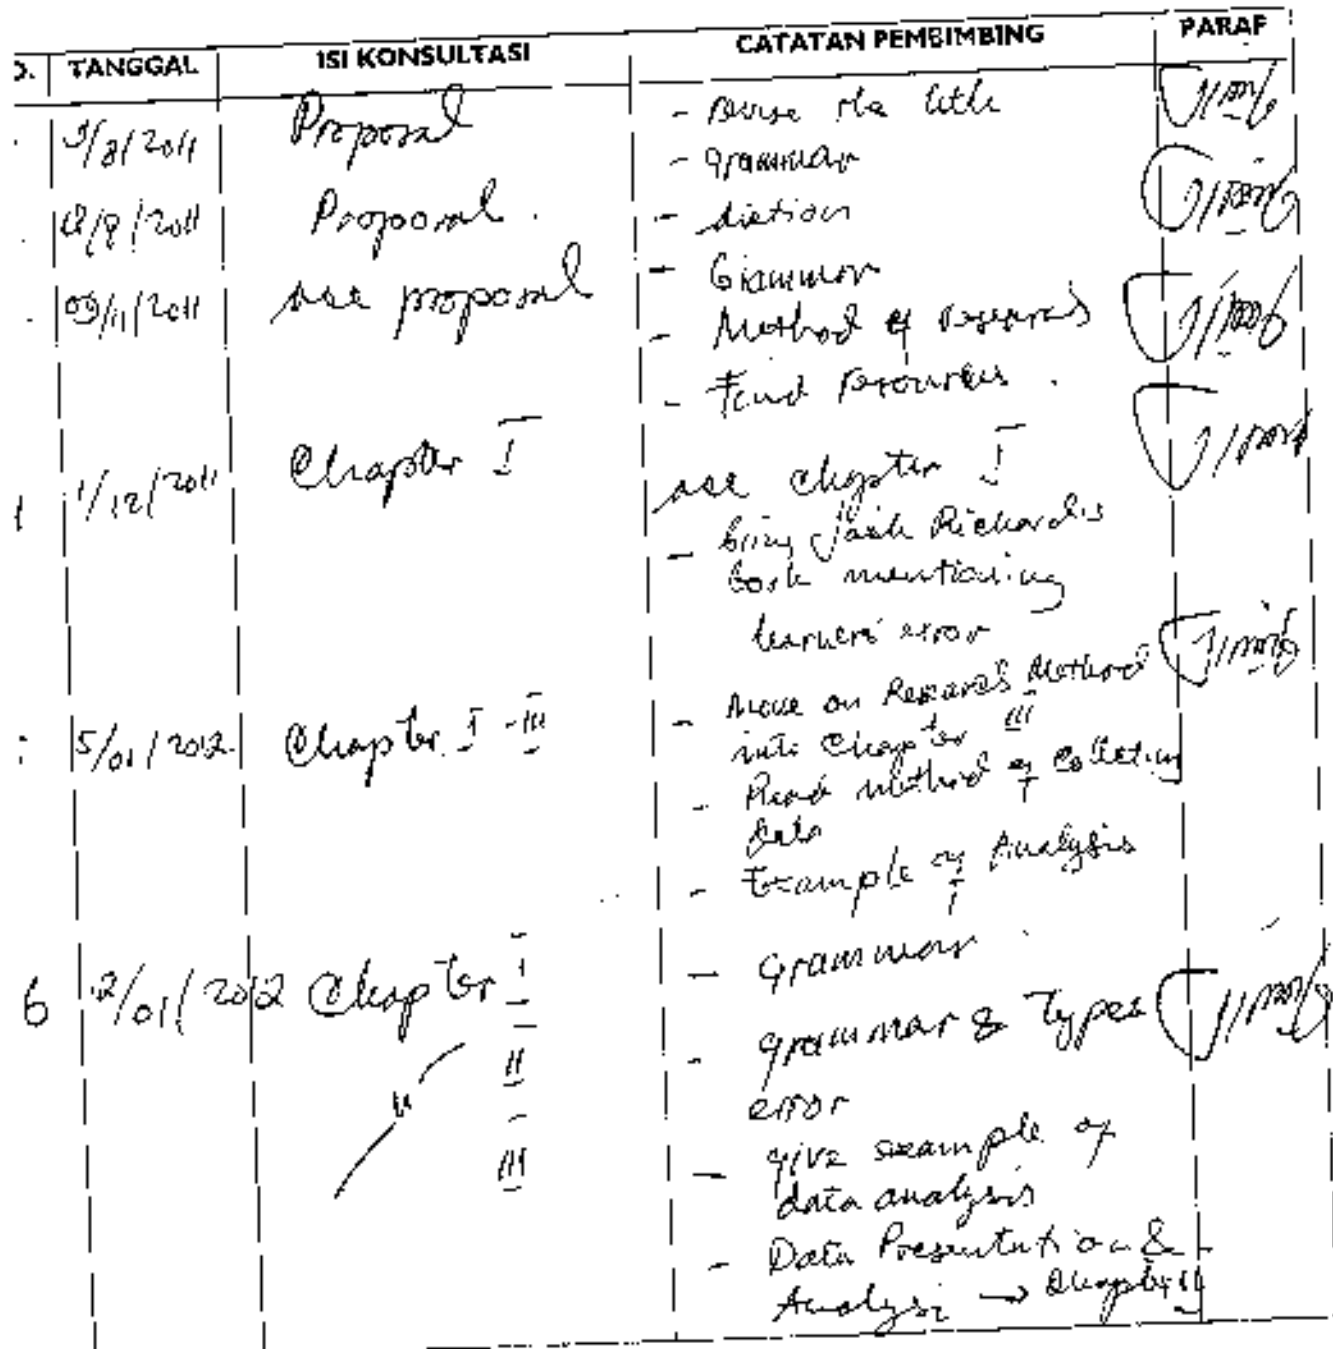 TANGGAL ISI KONSULTASI CATATAN PEMBIMBING PARAF
/8/2011 Proposal - revise the title
- grammar
/8/2011 Proposal. - diction
09/11/2011 acc proposal - Grammar
- Method of research
- Find resources.
1/12/2011 Chapter I acc chapter I
- bring Jack Richards
book mentioning
learners' error
5/01/2012 Chapter I - III - Move on Research Method
into Chapter III
- Read method of collecting
data
- Example of Analysis
6 12/01/2012 Chapter I - grammar
II - grammar & Types
error
III - give example of
data analysis
- Data Presentation &
Analysis → Chapter